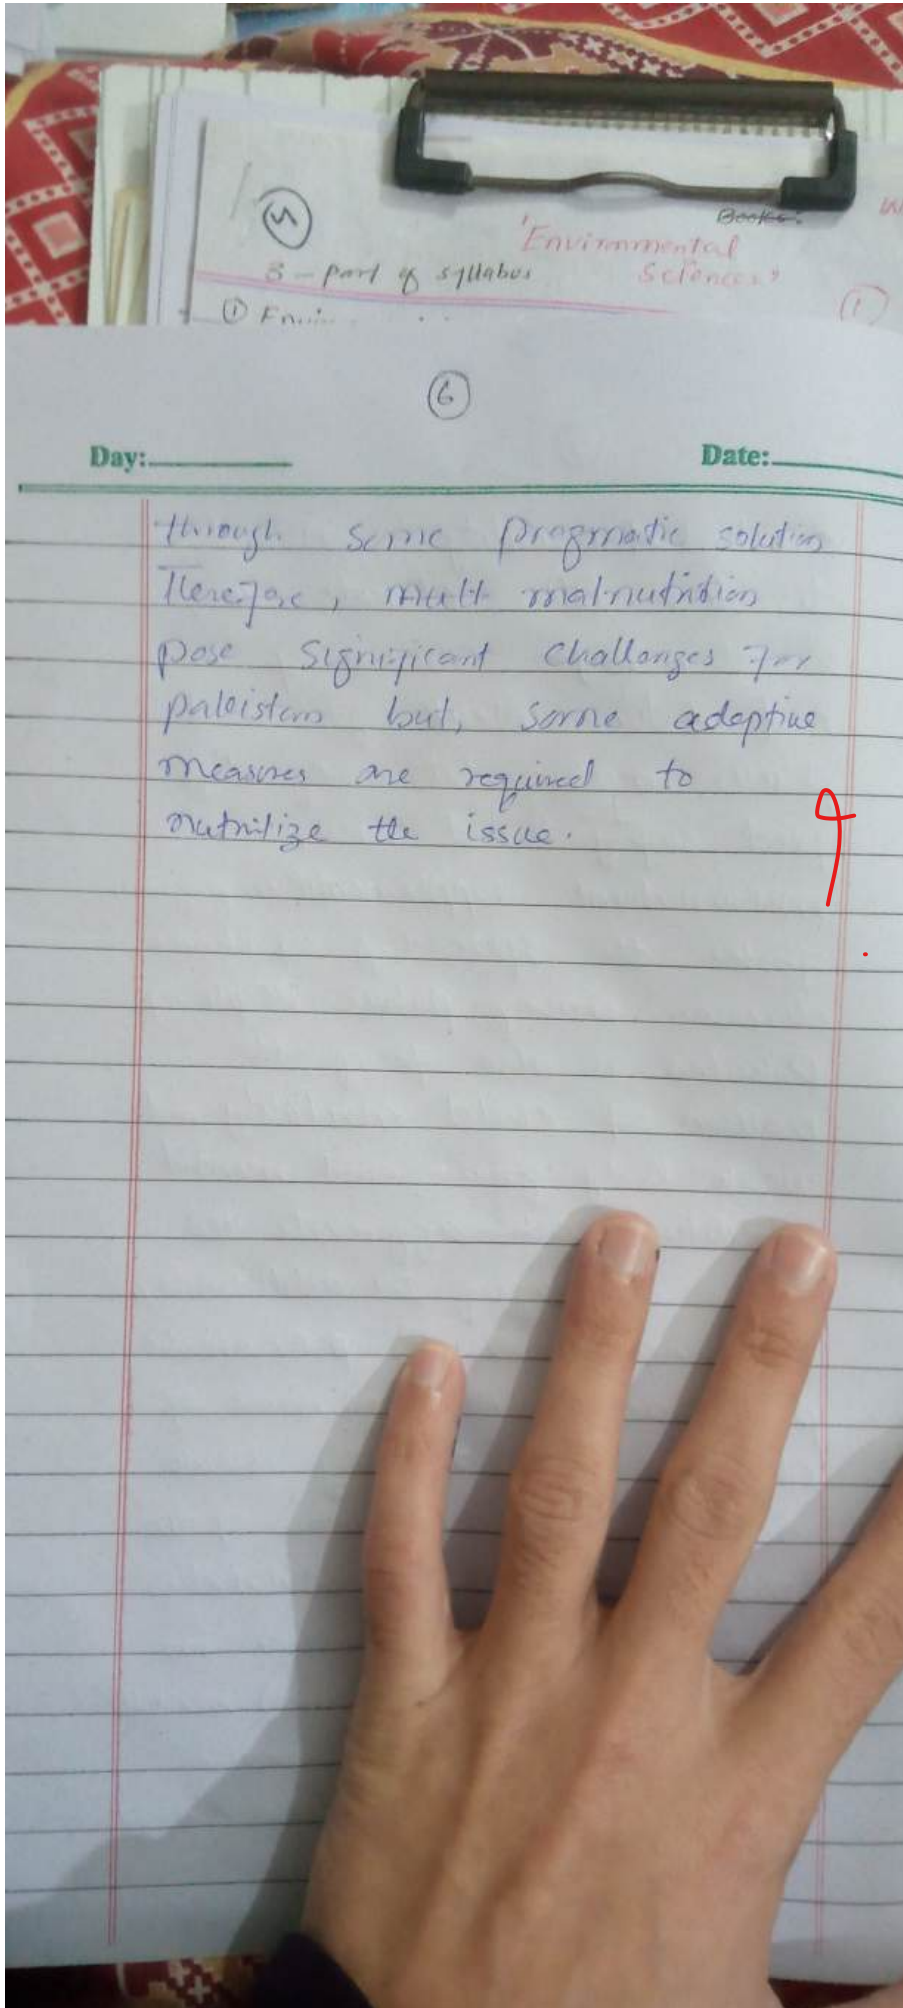 5
Books:
'Environmental
Sciences'
3 - part of syllabus
1
1
6
Day:
Date:
through some pragmatic solution
Therefore, malnutrition
pose significant challenges for
pakistan but, some adaptive
measures are required to
nutrilize the issue.